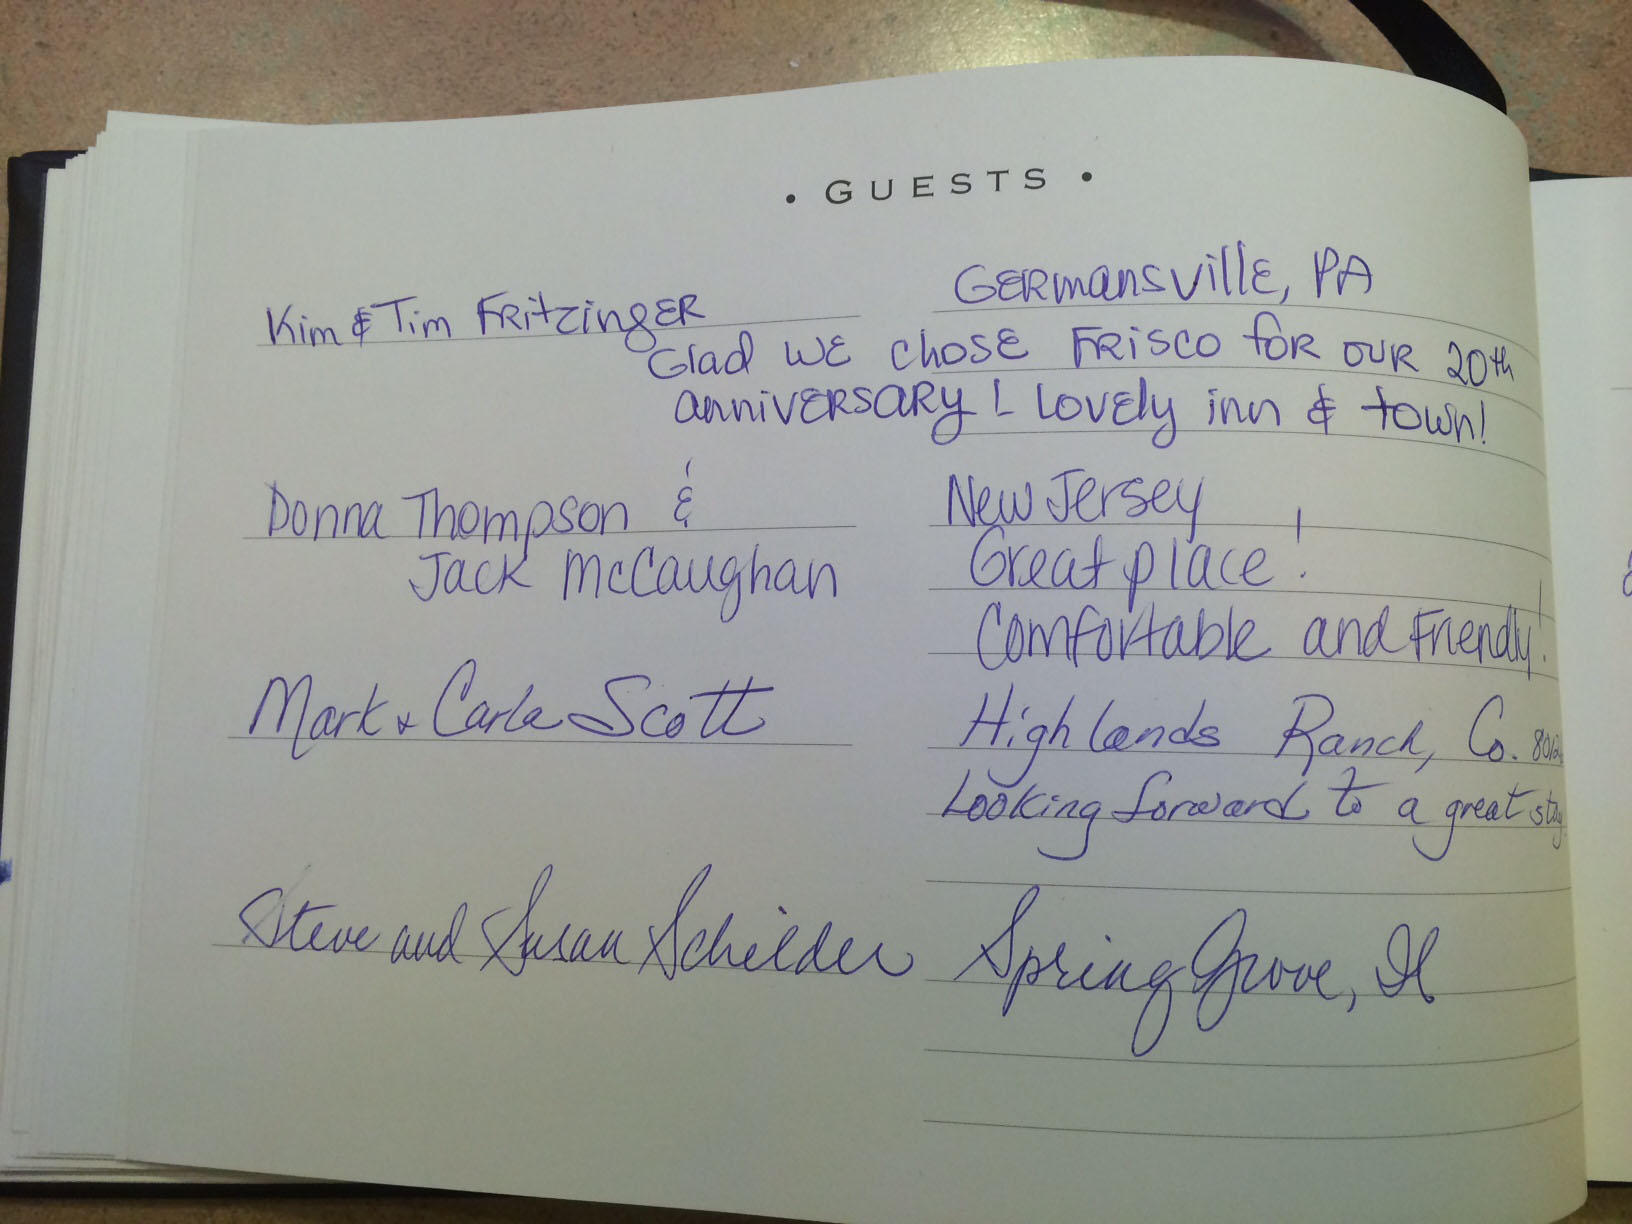 • GUESTS •
Kim & Tim Fritzinger Germansville, PA
Glad we chose Frisco for our 20th
anniversary! Lovely inn & town!
Donna Thompson & New Jersey
Jack McCaughan Great place!
Comfortable and Friendly!
Mark + Carla Scott Highlands Ranch, Co.
Looking forward to a great stay
Steve and Susan Schilder Spring Grove, Il